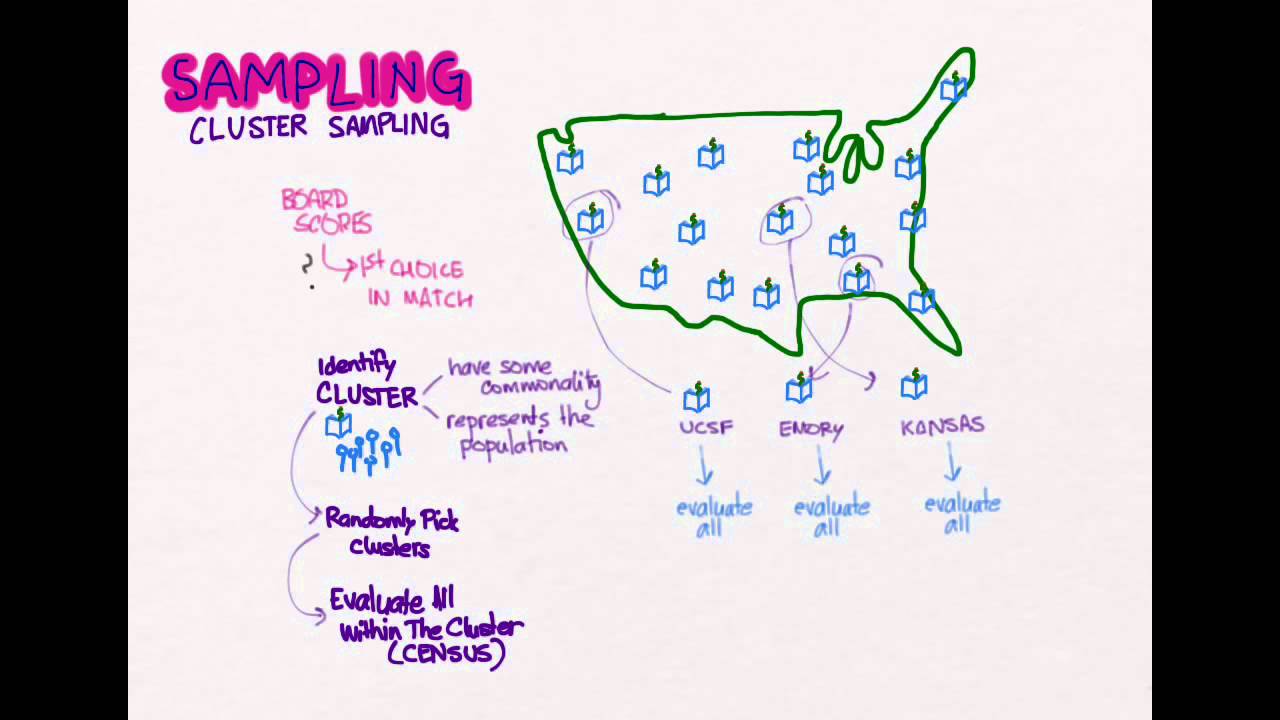 SAMPLING
CLUSTER SAMPLING
BOARD
SCORES
?
1st CHOICE
IN MATCH
Identify
CLUSTER
have some
commonality
represents the
population
Randomly Pick
clusters
Evaluate All
within The Cluster
(CENSUS)
UCSF
EMORY
KANSAS
evaluate
all
evaluate
all
evaluate
all